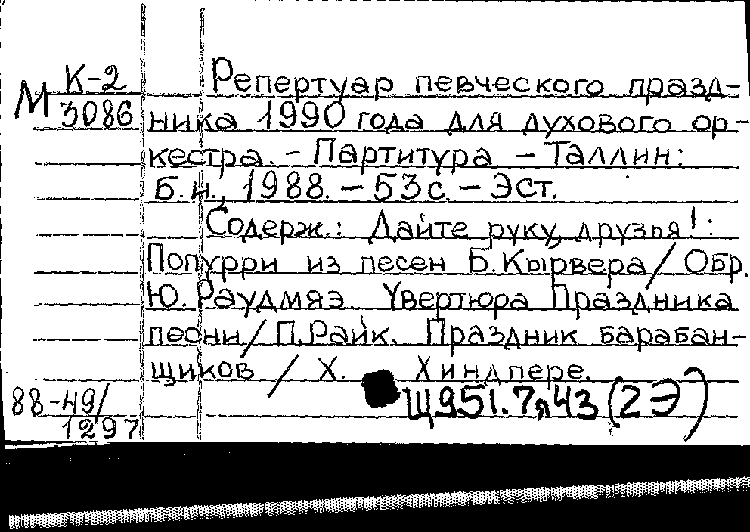 К-2 Репертуар певческого празд-
М 3086 ника 1990 года для духового ор-
кестра. - Партитура - Таллин:
Б.и., 1988. - 53 с. - Эст.
Содерж.: Дайте руку, друзья!:
Попурри из песен Б.Кырвера/ Обр.
Ю. Раудмяэ. Увертюра Праздника
песни/ П.Райк. Праздник барабан-
щиков / Х. Хиндпере.
88-49/ Щ951.7я43 (2Э)
1297